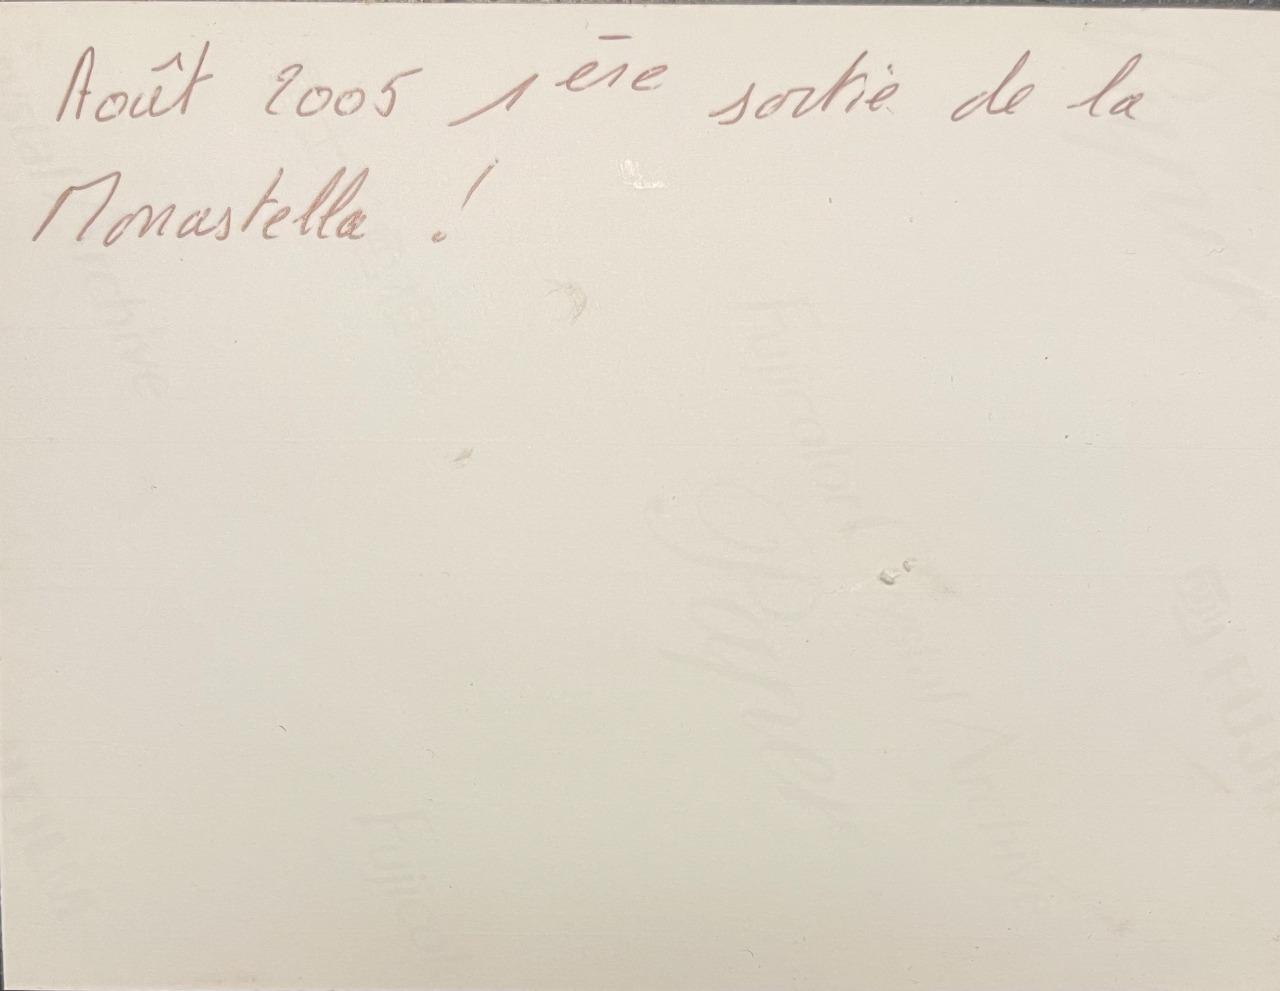 Août 2005 1ère sortie de la
Monastella !